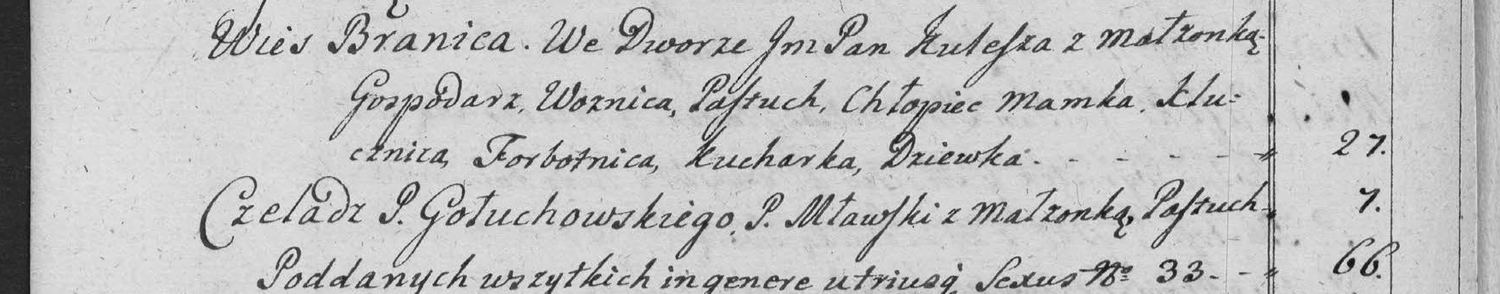 Wies Branica. We Dworze Jm Pan Kulesza z małzonką-
Gospodarz, Woznica, Pastuch, Chłopiec Mamka, Klu-
cznica, Forbotnica, Kucharka, Dziewka. - - - - - " 27.
Czeladz P. Gołuchowskiego, P. Mławski z małzonką, Pastuch- " 7.
Poddanych wszytkich in genere utriusq̃ Sexus No 33. - " 66.